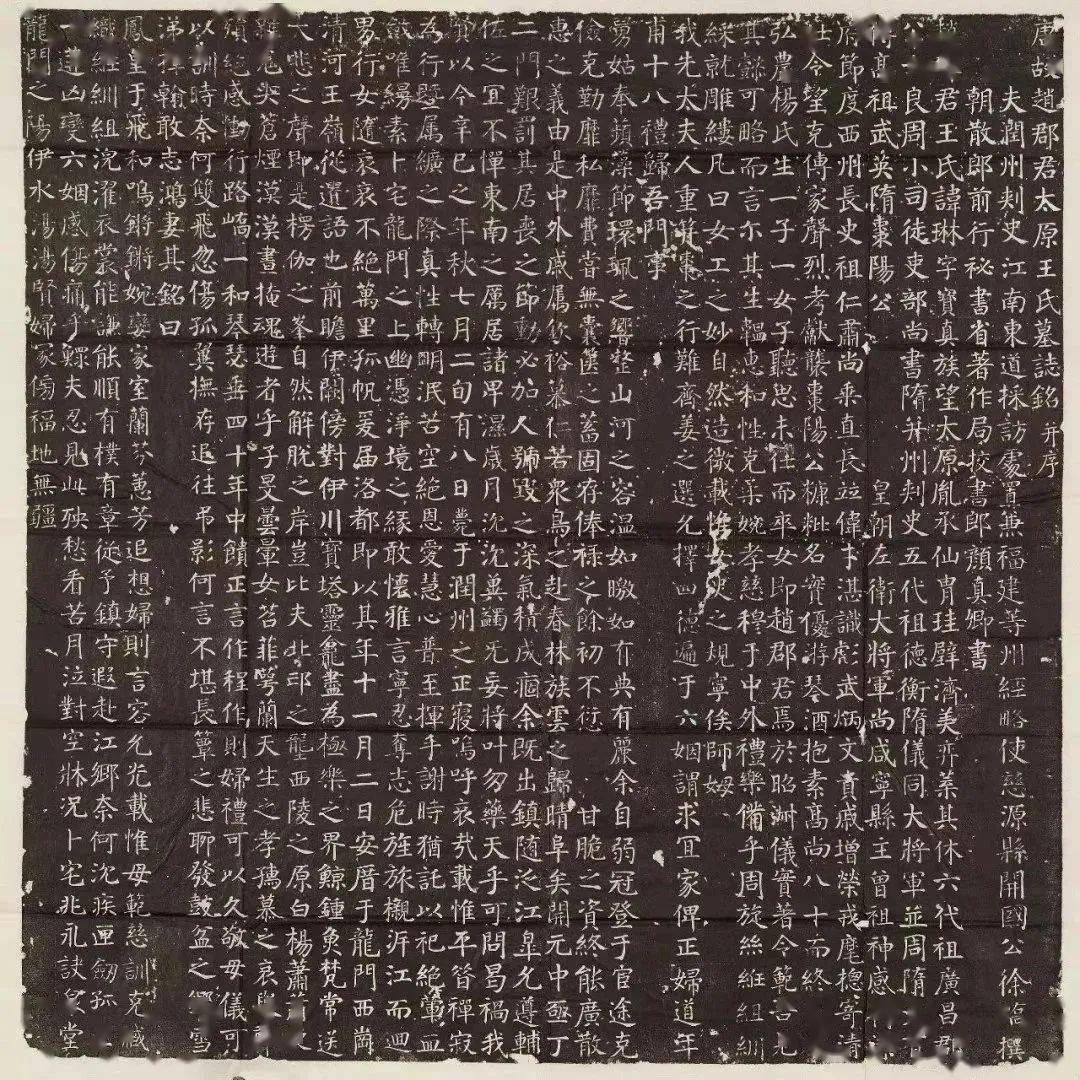 唐故趙郡君太原王氏墓誌銘并序
夫潤州刺史江南東道採訪處置兼福建等州經略使慈源縣開國公徐嶠撰
朝散郎前行祕書省著作局挍書郎顏真卿書
君王氏諱琳字寶真族望太原胤承仙冑珪璧濟美弈葉其休六代祖廣昌郡
公良周小司徒吏部尚書隋并州刺史五代祖德衡隋儀同大將軍並周隋
傳高祖武英隋棗陽公皇朝左衛大將軍尚咸寧縣主曾祖神感
府節度西州長史祖仁肅尚乘直長竝偉才湛識彪武炳文貴戚增榮戎麾揔寄清
仕令望克傳家聲烈考獻襲棗陽公糠粃名實優游琴酒抱素高尚八十而終
弘農楊氏生一子一女子聽思未仕而卒女即趙郡君焉於昭淋儀實著令範合
其懿可略而言尒其生韞惠和性克柔婉孝慈穆于中外禮樂備乎周旋絲絍組紃
綵就雕縷凡曰女工之妙自然造微載惟女史之規寧俟師姆
我先太夫人重蘋棗之行難齊姜之選允擇四德遍于六姻謂求宜家俾正婦道年
甫十八禮歸吾門事
舅姑奉蘋藻節環珮之響整山河之容溫如暾如有典有麗余自弱冠登于官途克
儉克勤靡私靡費眥無囊篋之蓄固存俸祿之餘初不愆甘脆之資終能廣散
惠之義由是中外戚屬欽裕慕仁若衆鳥之赴春林族雲之歸晴阜矣開元中亟丁
二門艱罰其居喪之節動必加人號毀之深氣積成痼余既出鎮隨泛江皐允遵輔
佐之宜不憚東南之厲居諸卑濕歲月沉沉蕒蠲无妄將叶勿藥天乎可問曷禍我
賢以今辛巳之年秋七月二旬有八日薨于潤州之正寢嗚呼哀哉載惟平昔禪寂
為行暨属纊之際真性轉明泯苦空絕恩愛慧心普至揮手謝時猶託以祀絕葷血
斂唯縵素卜宅龍門之上幽憑淨境之緣敢懷雅言寧忍奪志危旌旅櫬泝江而迴
男行女隨哀哀不絕萬里孤帆爰屆洛都即以其年十一月二日安厝于龍門西崗
清河王嶺從遷語也前瞻伊闕傍對伊川寶塔靈龕盡為極樂之界鯨鍾魚梵常送
大悲之聲即是楞伽之峯自然解脫之岸豈比夫北邙之壟西陵之原白楊蕭蕭
雖見突蒼煙漠漠晝掩魂遊者乎子旻曇暈女苕菲萼蘭天生之孝孺慕之哀
殞絕感慟行路嶠一和琴瑟垂四十年中饋正言作程作則婦禮可以久敬母儀可
以訓時奈何雙飛忽傷孤冀撫存追往弔影何言不堪長簟之悲聊發鼓盆之
涕揮翰敢志鴻妻其銘曰
鳳皇于飛和鳴鏘鏘婉孌家室蘭芬蕙芳追想婦則言容允光載惟母範慈訓克
織絍紃組浣濯衣裳能謙能順有樸有章從予鎮守遐赴江鄉奈何沈疾匣劒孤
遘凶變六姻感傷痛乎鰥夫忍見此殃愁看苦月泣對空牀況卜宅兆永訣泉堂
龍門之陽伊水湯湯賢婦家傍福地無疆